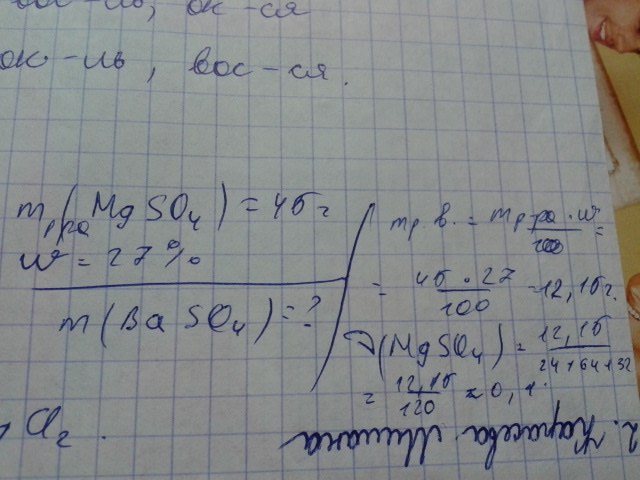 вос-ль, ок-ся
ок-ль, вос-ся.
m р-ра (MgSO₄) = 45 г
w = 27 %
m (BaSO₄) = ?
m р.в. = m р-ра · w / 100 =
= 45 · 27 / 100 = 12,15 г.
ν(MgSO₄) = 12,15 / 24+64+32
= 12,15 / 120 ≈ 0,1
, Cl₂.
2. Карасева Милана